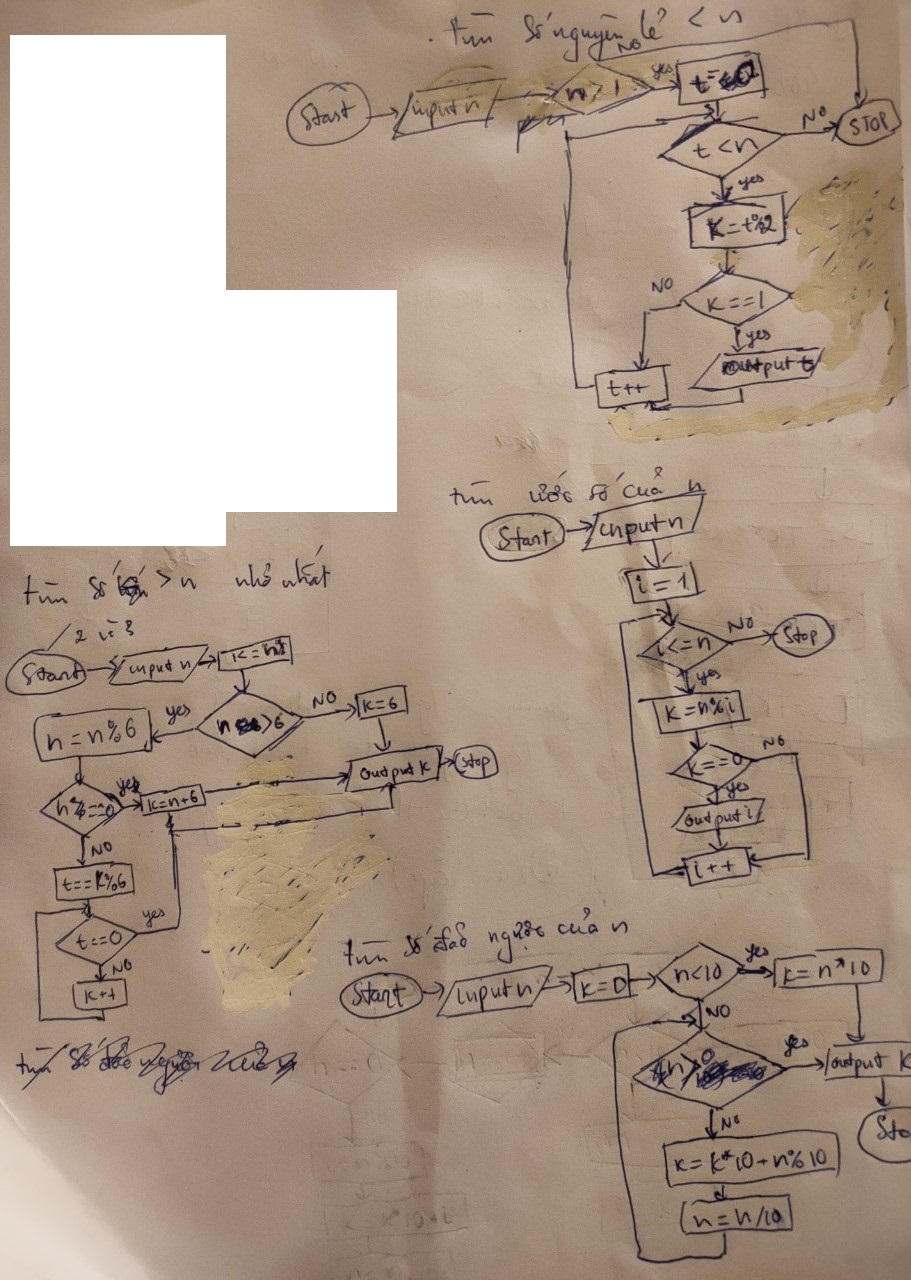 tìm số nguyên lẻ < n
Start
input n
n > 1
NO
yes
STOP
t < n
NO
yes
K = t%2
K == 1
NO
yes
output t
t++
tìm ước số của n
Start
input n
i = 1
i <= n
NO
Stop
yes
K = n%i
K == 0
NO
yes
output i
i++
tìm số > n nhỏ nhất
2 và 3
Start
input n
n > 6
yes
NO
K = 6
n = n%6
output K
stop
yes
K = n+6
NO
t == K%6
t == 0
yes
NO
K++
tìm số đảo ngược của n
Start
input n
K = 0
n < 10
yes
K = n*10
NO
yes
output K
Sto
NO
K = K*10 + n%10
n = n/10